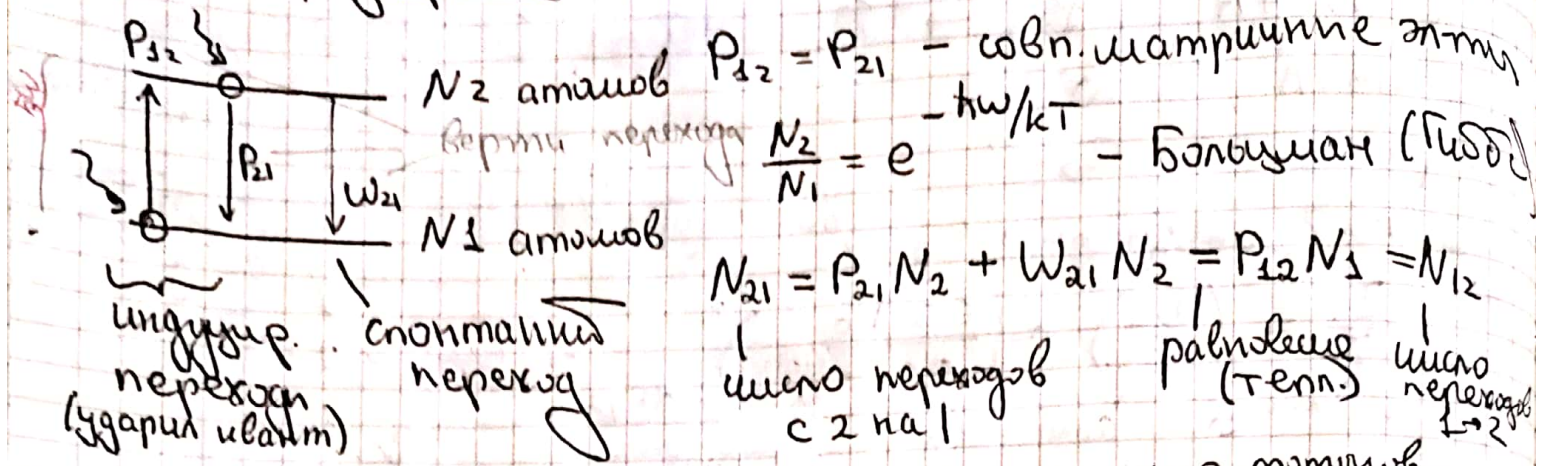 P₁₂
N2 атомов
верти перехода
P₂₁
W₂₁
N1 атомов
индуцир.
переходы
(ударил квант)
спонтанный
переход
P₁₂ = P₂₁ – совп. матричные эл-ты
N₂/N₁ = e^(-ħω/kT) – Больцман (Гиббс)
N₂₁ = P₂₁N₂ + W₂₁N₂ = P₁₂N₁ = N₁₂
число переходов
с 2 на 1
равновесие
(тепл.)
число
переходов
1→2